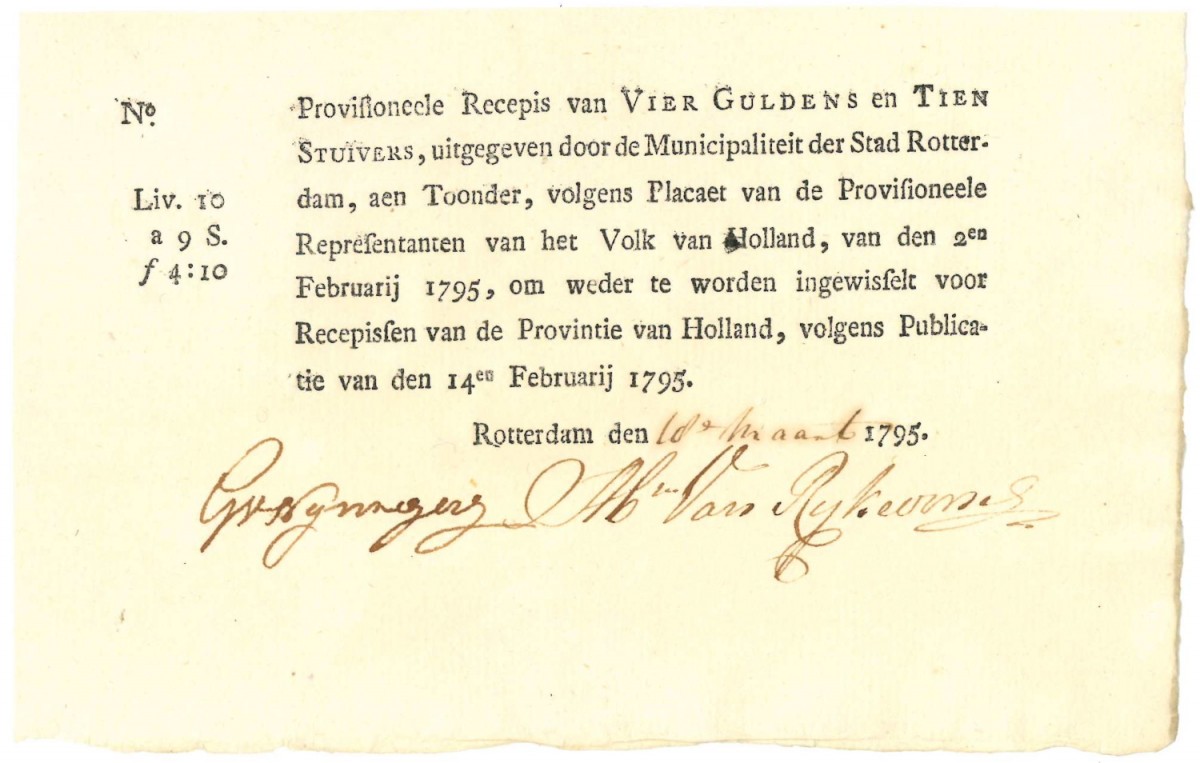 No.
Provisioneele Recepis van VIER GULDENS en TIEN
STUIVERS, uitgegeven door de Municipaliteit der Stad Rotter-
Liv. 10
dam, aen Toonder, volgens Placaet van de Provisioneele
a 9 S.
Repreſentanten van het Volk van Holland, van den 2en
ƒ 4:10
Februarij 1795, om weder te worden ingewisſelt voor
Recepisſen van de Provintie van Holland, volgens Publica-
tie van den 14en Februarij 1795.
Rotterdam den 18e Maart 1795.
Van